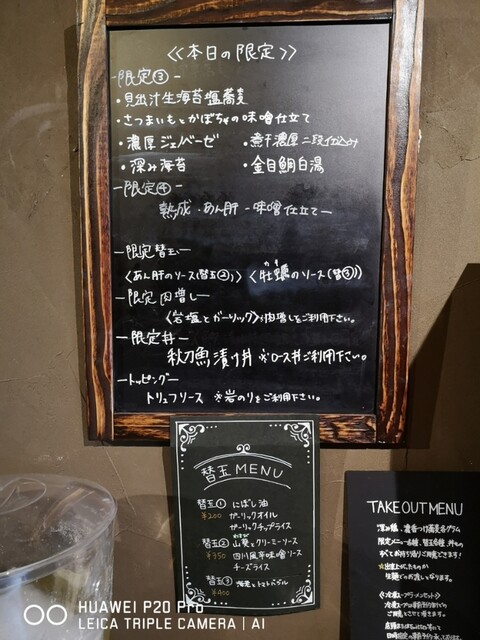 《本日の限定》
-限定③-
・見出汁生海苔塩蕎麦
・さつまいもとかぼちゃの味噌仕立て
・濃厚ジェノベーゼ ・煮干濃厚二段仕込み
・深み海苔 ・金目鯛白湯
-限定④-
熟成・あん肝-味噌仕立て-
-限定替玉-
〈あん肝のソース(替玉②)〉〈牡蠣のソース(替③)〉
かき
-限定肉増し-
〈岩塩とガーリック〉※肉増しをご利用下さい。
-限定丼-
秋刀魚漬け丼 ※ロース丼ご利用下さい。
-トッピング-
トリュフソース ※岩のりをご利用下さい。
替玉MENU
替玉① にぼし油
¥200 ガーリックオイル
ガーリックチップライス
わさび
替玉② 山葵とクリーミーソース
¥350 四川風辛味噌ソース
チーズライス
替玉③ 海老とトマトバジル
¥400
TAKE OUT MENU
限定メニュー各種、替玉各種、丼もの
すべてお持ち帰りご用意できます!
HUAWEI P20 Pro
LEICA TRIPLE CAMERA | AI